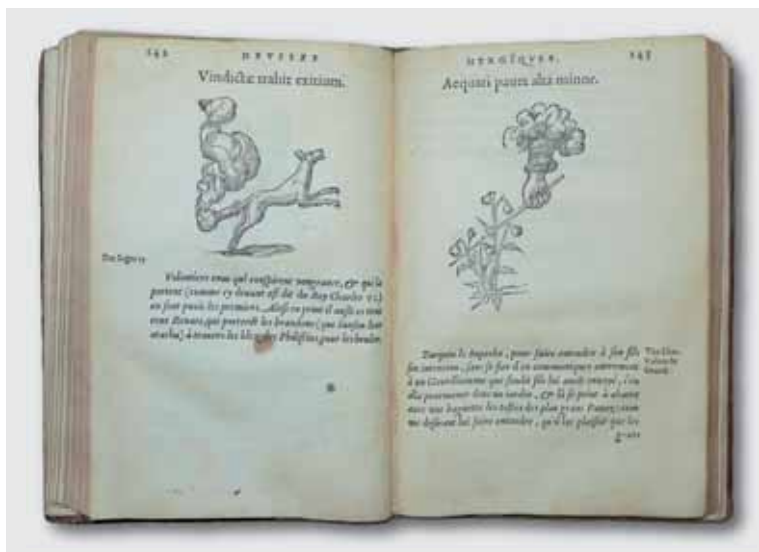 242
DEVISES
Vindictæ trahit exitium.
Volontiers ceus qui conspirent vengeance, & qui la
portent (comme cy deuant est dit du Roy Charles VI.)
en sont punis les premiers. Ainsi en print il ausi es trois
cens Renars, qui porterent les brandons (que Sanson leur
atacha) à trauers les bleds des Philistins, pour les bruler.
HEROÏQUES.
243
Aequari pauet alta minor.
Tarquin le Superbe, pour faire entendre à son fils
son intencion, sans se fier d'en communiquer autrement
à un Gentilhomme que sondit fils lui auoit enuoyé, s'en
alla pourmener dans un iardin, & là se print à abatre
auec une baguette les testes des plus grans Pauots: com-
me desirant lui faire entendre, qu'il lui plaisoit que les
grans